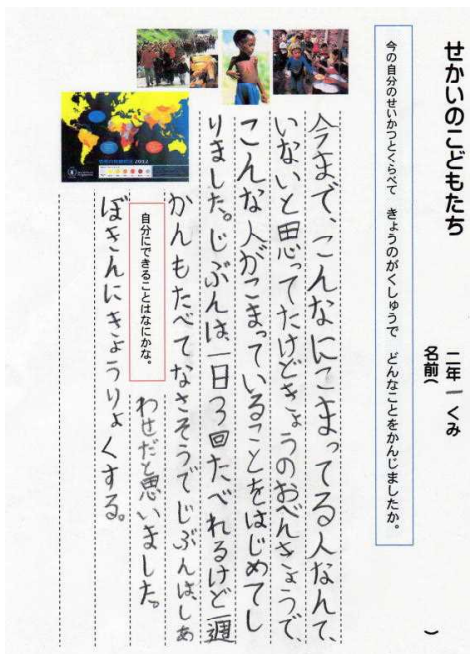 せかいのこどもたち
二年 一くみ
名前( )
今の自分のせいかつとくらべて きょうのがくしゅうで どんなことをかんじましたか。
今まで、こんなにこまってる人なんて、
いないと思ってたけどきょうのおべんきょうで、
こんな人がこまっていることをはじめてし
りました。じぶんは、一日3回たべれるけど一週
かんもたべてなさそうでじぶんは、しあ
わせだと思いました。
自分にできることはなにかな。
ぼきんにきょうりょくする。